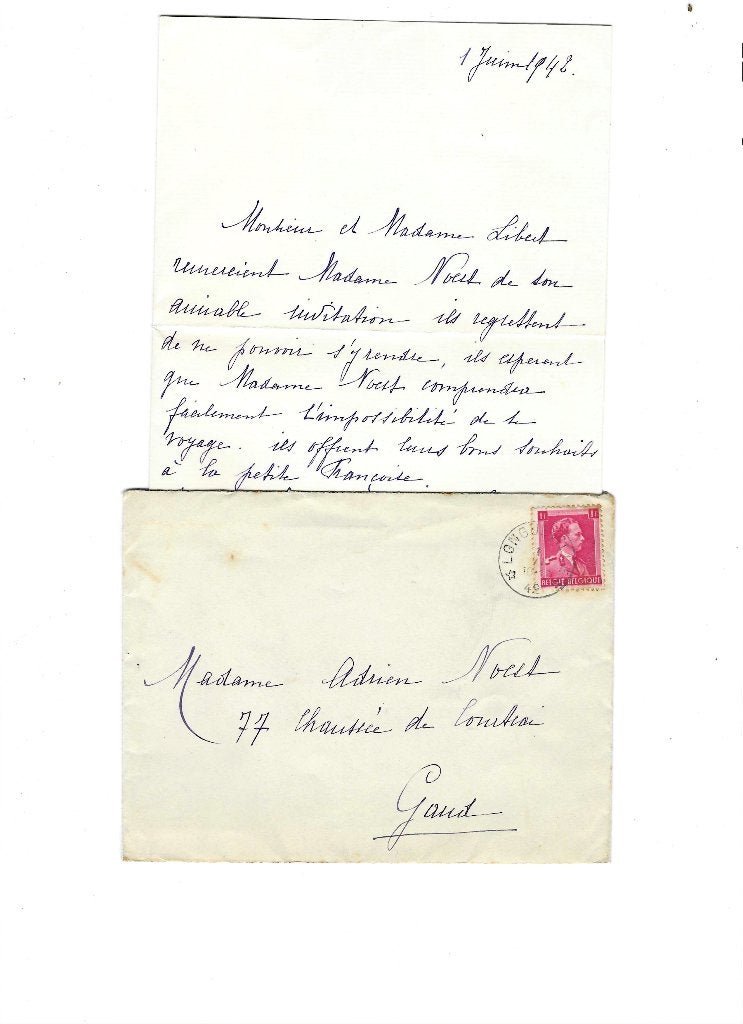 1 Juin 1942.
Monsieur et Madame Libert
remercient Madame Noest de son
aimable invitation ils regrettent
de ne pouvoir s'y rendre, ils esperent
que Madame Noest comprendra
facilement l'impossibilité de
voyage. ils offrent leurs bons souhaits
à la petite Françoise.
LONG
42
1F 1F
BELGIE BELGIQUE
Madame Adrien Noest
77 Chaussée de Courtrai
Gand